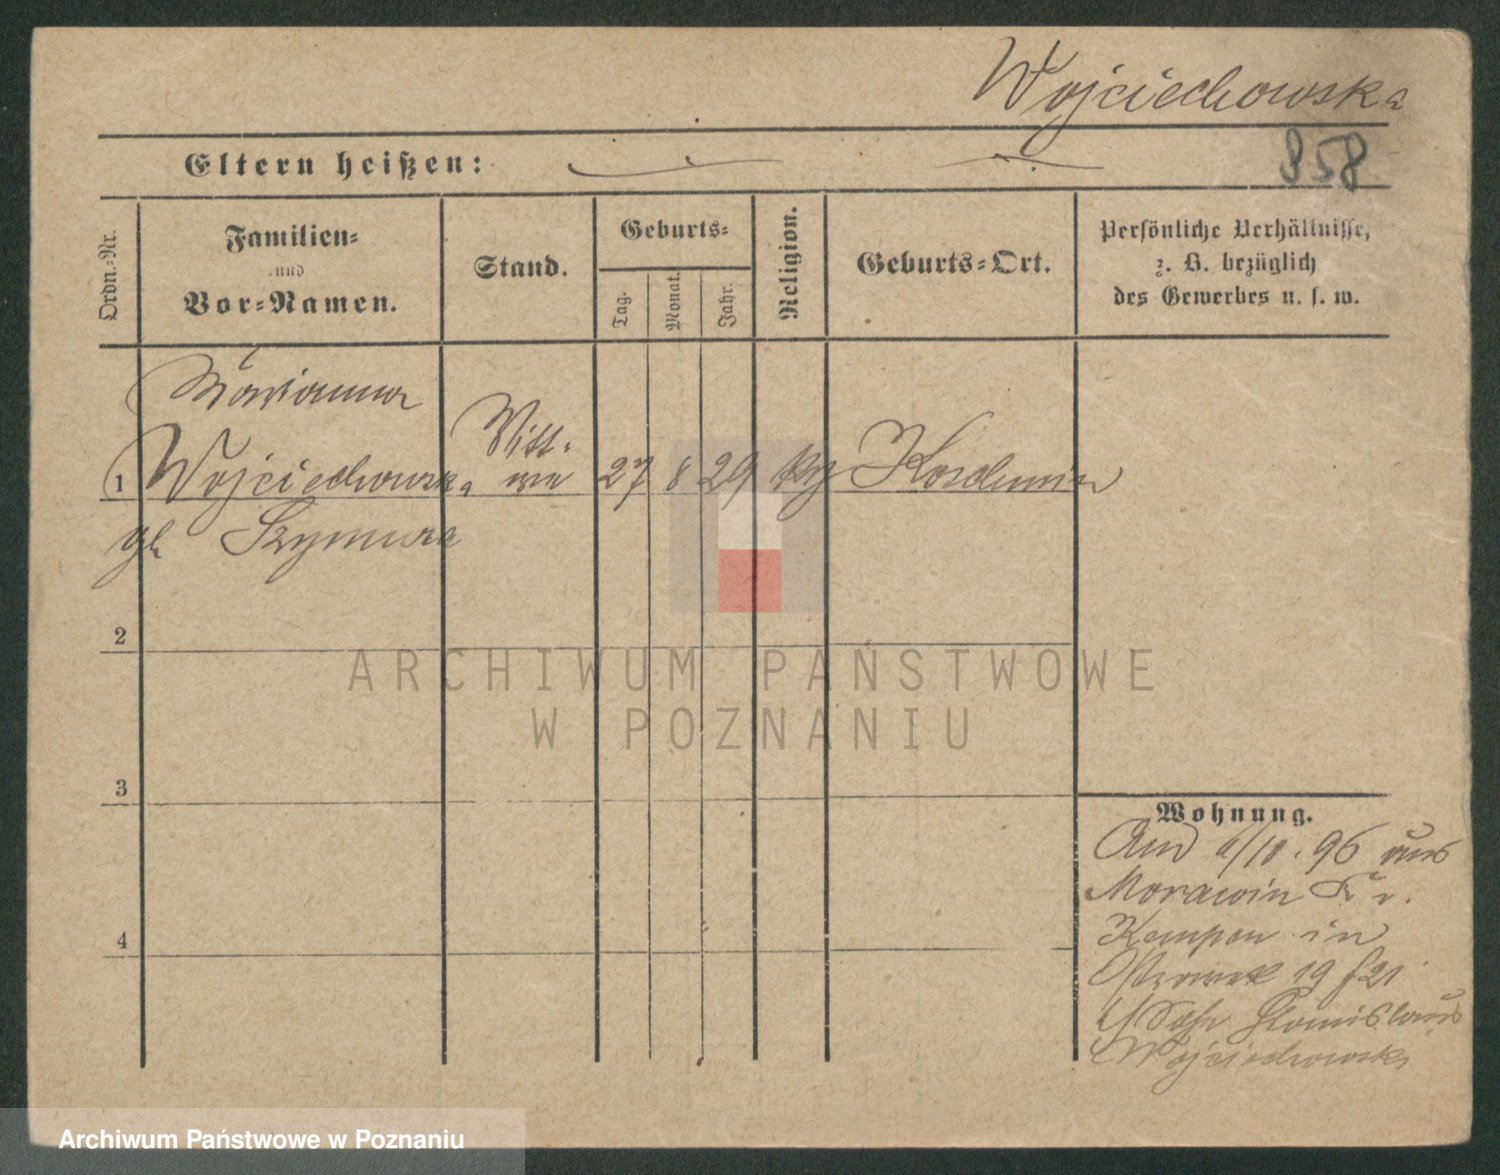 Wojciechowska
858
Eltern heißen:
Ordn.-Nr.
Familien-
und
Vor-Namen.
Stand.
Geburts-
Tag.
Monat.
Jahr.
Religion.
Geburts-Ort.
Persönliche Verhältnisse,
z. B. bezüglich
des Gewerbes u. s. w.
Marianna
1 Wojciechowska
Witt-
we
27 8 29
Koschmin
Szymura
2
3
4
Wohnung.
96 aus
Morawin Kr.
Kempen in
19 f 21
Sohn Stanislaus
Wojciechowski
ARCHIWUM PAŃSTWOWE
W POZNANIU
Archiwum Państwowe w Poznaniu